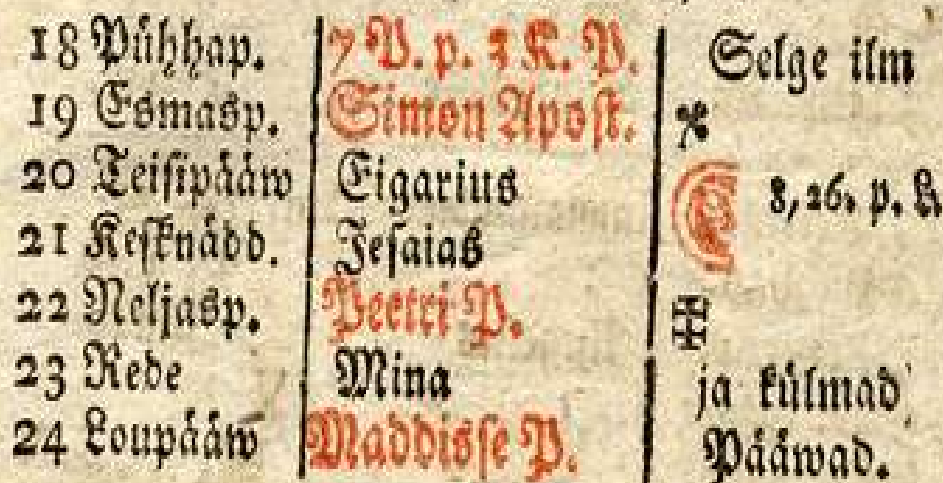 18 Pühhap. 7 P. p. 3 K. P. Selge ilm
19 Esmasp. Simon Apost.
20 Teisipääw Eigarius 8, 26. p. K
21 Kesknädd. Jesaias
22 Neljasp. Peetri P.
23 Rede Mina ja külmad
24 Loupääw Maddisse P. Pääwad.